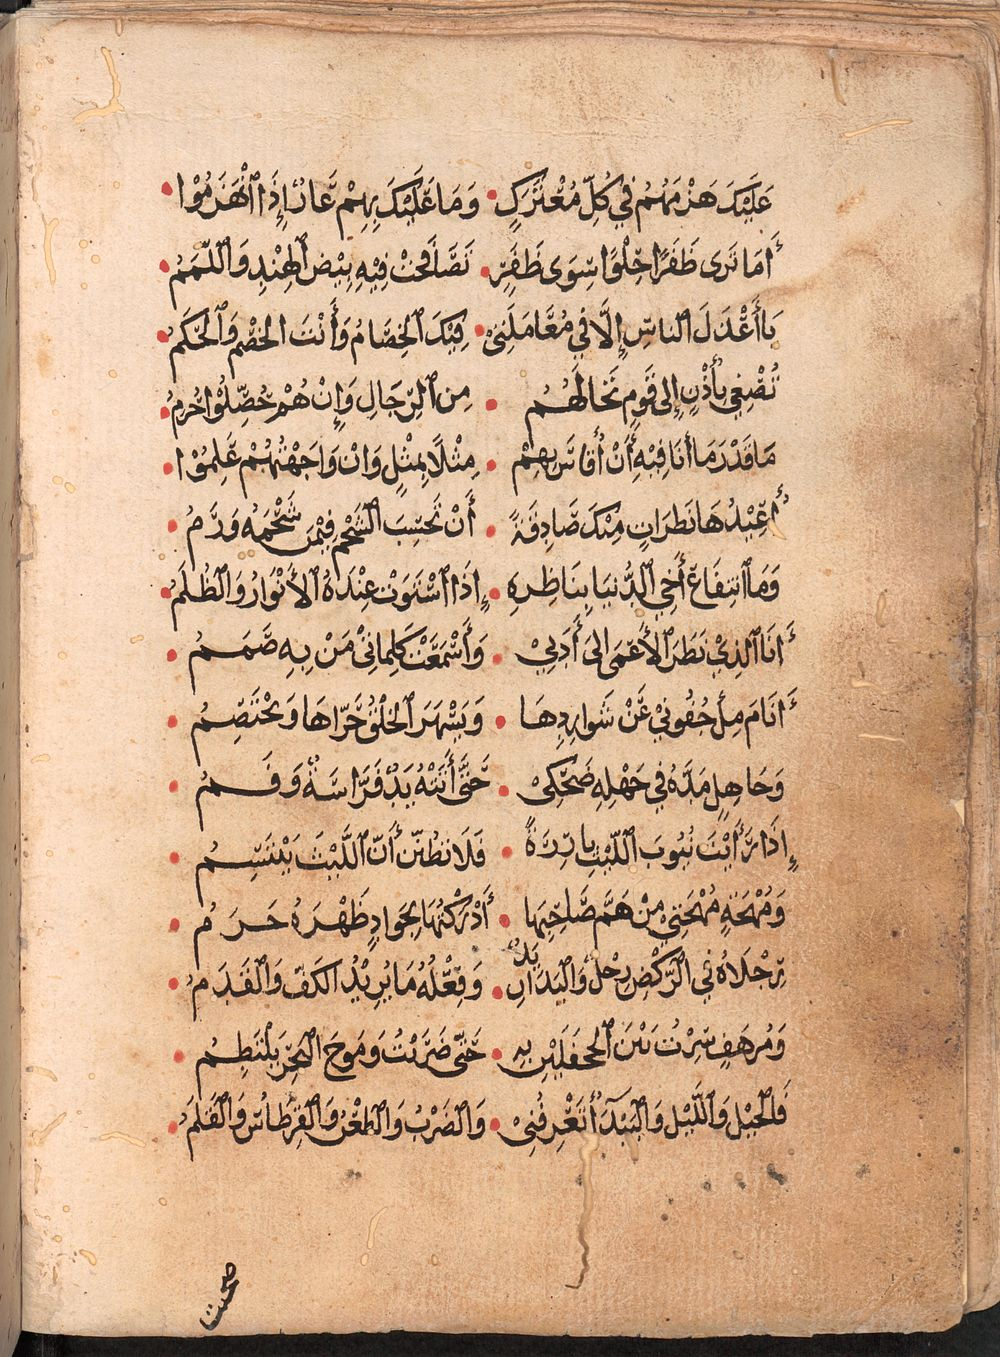 عَلَيْكَ هَزْمُهُمُ فِي كُلِّ مُعْتَرَكٍ • وَمَا عَلَيْكَ بِهِمْ عَارٌ إِذَا انْهَزَمُوْا •
أَمَا تَرى ظَفَرًا حِلْوًا سِوَى ظَفَرٍ • تَصَافَحَتْ فِيْهِ بِيْضُ الهِنْدِ وَاللَّمَمُ •
يَا أَعْدَلَ النَّاسِ إِلَّا فِي مُعَامَلَتِيْ • فِيْكَ الخِصَامُ وَأَنْتَ الخَصْمُ وَالحَكَمُ •
تُصْغِي بِأُذْنٍ إِلى قَوْمٍ تَخَالُهُمُ • مِنَ الرِّجَالِ وَإِنْ هُمْ حُصِّلُوا خُرِمُ •
مَا قَدْرَ مَا أَنَا فِيْهِ أَنْ أُقَاسَ بِهِمْ • مِثْلًا بِمِثْلٍ وَانْ وَاجَهْتُهُمْ عَلِمُوْا •
أُعِيْذُهَا نَظَرَاتٍ مِنْكَ صَادِقَةً • أَنْ تَحْسِبَ الشَّحْمَ فِيْمَنْ شَحْمُهُ وَرَمُ •
وَمَا انْتِفَاعُ أَخِي الدُّنْيَا بِنَاظِرِهِ • إِذَا اسْتَوَتْ عِنْدَهُ الأَنْوَارُ وَالظُّلَمُ •
أَنَا الَّذِيْ نَظَرَ الأَعْمى الى أَدَبِيْ • وَأَسْمَعَتْ كَلِمَاتِيْ مَنْ بِهِ صَمَمُ •
أَنَامُ مِلْءَ جُفُونِيْ عَنْ شَوَارِدِهَا • وَيَسْهَرُ الخَلْقُ جَرَّاهَا وَيَخْتَصِمُ •
وَجَاهِلٍ مَدَّهُ فِي جَهْلِهِ ضَحِكِيْ • حَتَّى أَتَتْهُ يَدٌ فَرَّاسَةٌ وَفَمُ •
إِذَا رَأَيْتَ نُيُوبَ اللَّيْثِ بَارِزَةً • فَلَا تَظُنَّنَّ أَنَّ اللَّيْثَ يَبْتَسِمُ •
وَمُهْجَةٍ مُهْجَتِيْ مِنْ هَمِّ صَاحِبِهَا • أَدْرَكْتُهَا بِجَوَادٍ ظَهْرُهُ حَرَمُ •
رِجْلَاهُ فِي الرَّكْضِ رِجْلٌ وَاليَدَانِ يَدٌ • وَفِعْلُهُ مَا يُرِيْدُ الكَفُّ وَالقَدَمُ •
وَمُرهَفٍ سِرْتُ بَيْنَ الجَحْفَلَيْنِ بِهِ • حَتّى ضَرَبْتُ وَمَوجُ البَحْرِ يَلْتَطِمُ •
فَالخَيْلُ وَاللَّيْلُ وَالبَيْدَاءُ تَعْرِفُنِيْ • وَالضَرْبُ وَالطَعْنُ وَالقِرطَاسُ وَالقَلَمُ •